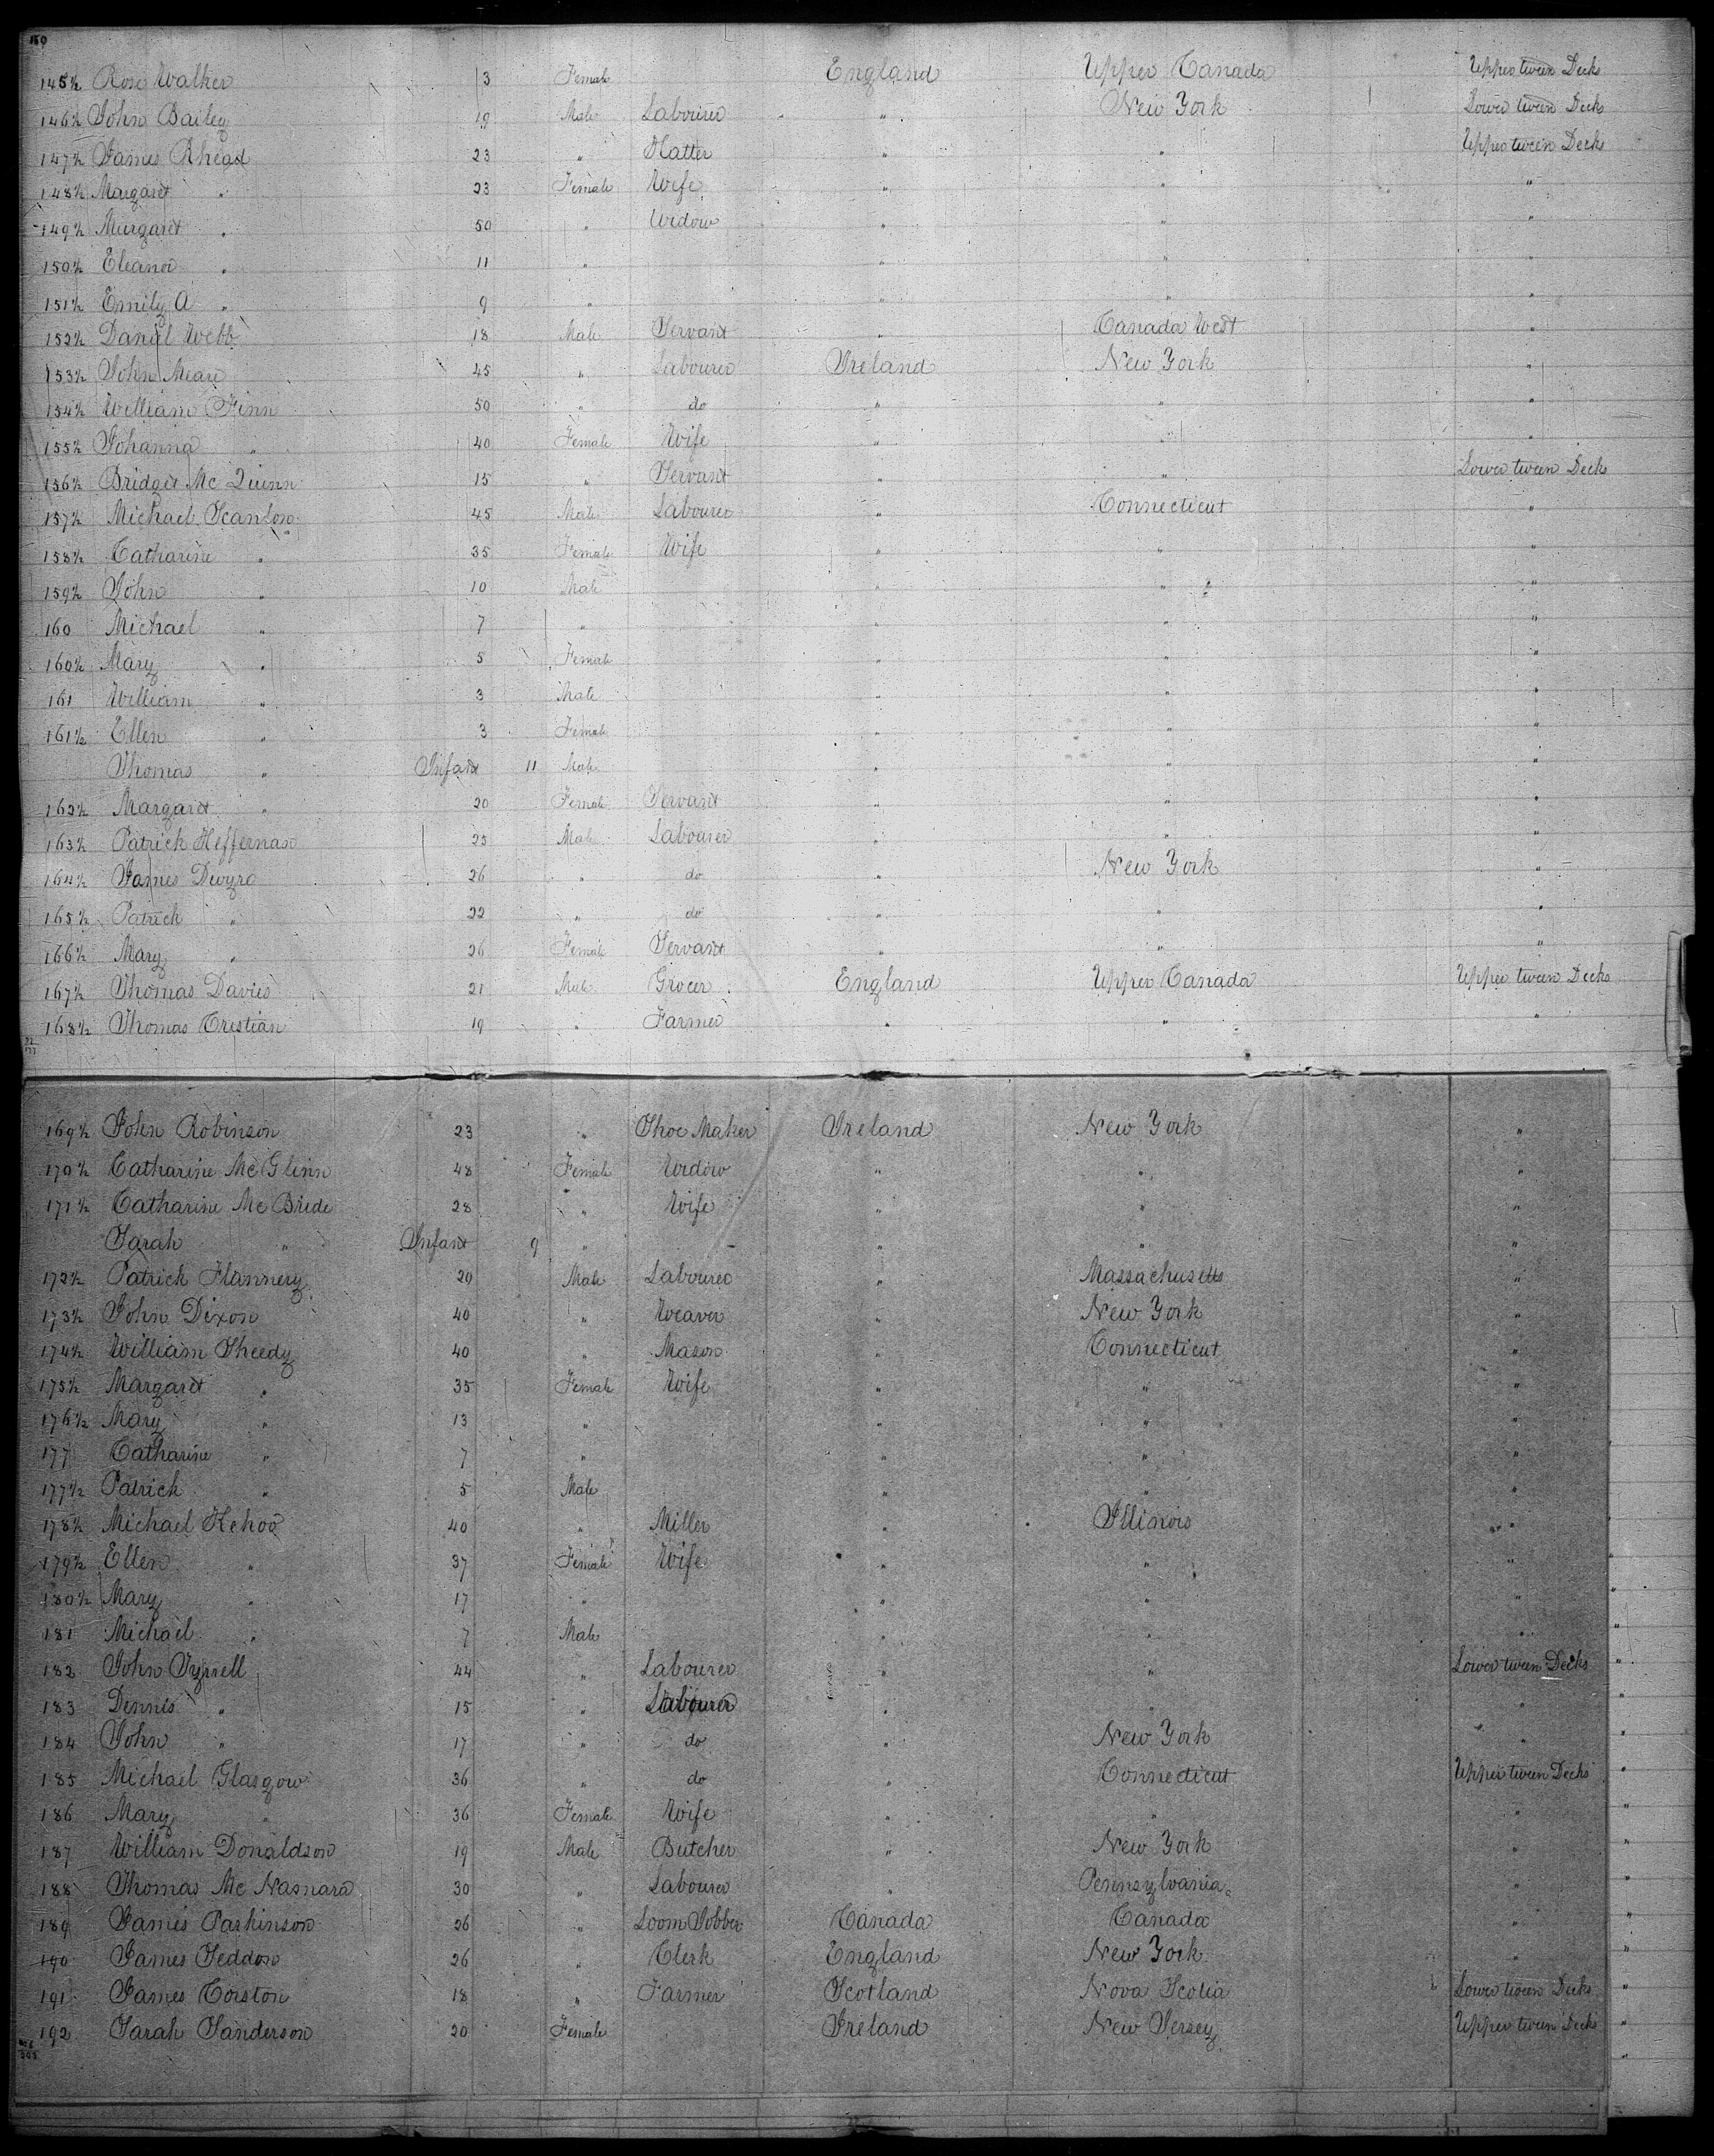 150
145½ Rose Walker 3 Female England Upper Canada Upper tween Decks
146½ John Bailey 19 Male Labourer " New York Lower tween Deck
147½ James Rhead 23 " Hatter " " Upper tween Decks
148½ Margaret " 23 Female Wife " " "
149½ Margaret " 50 " Widow " " "
150½ Eleanor " 11 " " " "
151½ Emily A " 9 " " " "
152½ Daniel Webb 18 Male Servant " Canada West "
153½ John Meare 45 " Labourer Ireland New York "
154½ William Finn 50 " do " " "
155½ Johanna " 40 Female Wife " " "
156½ Bridget Mc Quinn 15 " Servant " " Lower tween Decks
157½ Michael Scanlon 45 Male Labourer " Connecticut "
158½ Catharine " 35 Female Wife " " "
159½ John " 10 Male " " "
160 Michael " 7 " " " "
160½ Mary " 5 Female " " "
161 William " 3 Male " " "
161½ Ellen " 3 Female " " "
Thomas " Infant 11 Male " " "
162½ Margaret " 20 Female Servant " " "
163½ Patrick Heffernan 25 Male Labourer " " "
164½ James Dwyre 26 " do " New York "
165½ Patrick " 22 " do " " "
166½ Mary " 26 Female Servant " " "
167½ Thomas Davies 21 Male Grocer England Upper Canada Upper tween Decks
168½ Thomas Cristian 19 " Farmer " " "
169½ John Robinson 23 " Shoe Maker Ireland New York "
170½ Catharine Mc Glinn 48 Female Widow " " "
171½ Catharine Mc Bride 28 " Wife " " "
Sarah " Infant 9 " " " "
172½ Patrick Flannery 20 Male Labourer " Massachusetts "
173½ John Dixon 40 " Weaver " New York "
174½ William Sheedy 40 " Mason " Connecticut "
175½ Margaret " 35 Female Wife " " "
176½ Mary " 13 " " " "
177 Catharine " 7 " " " "
177½ Patrick " 5 Male " " "
178½ Michael Kehoo 40 " Miller " Illinois "
179½ Ellen " 37 Female Wife " " "
180½ Mary " 17 " " " "
181 Michael " 7 Male " " "
182 John Tyrrell 44 " Labourer " " Lower tween Decks
183 Dennis " 15 " Labourer " " "
184 John " 17 " do " New York "
185 Michael Glasgow 36 " do " Connecticut Upper tween Decks
186 Mary " 36 Female Wife " " "
187 William Donaldson 19 Male Butcher " New York "
188 Thomas Mc Nasnara 30 " Labourer " Pennsylvania "
189 James Parkinson 26 " Loom Jobber Canada Canada "
190 James Seddon 26 " Clerk England New York "
191 James Corston 18 " Farmer Scotland Nova Scotia Lower tween Decks
192 Sarah Sanderson 20 Female Ireland New Jersey Upper tween Decks